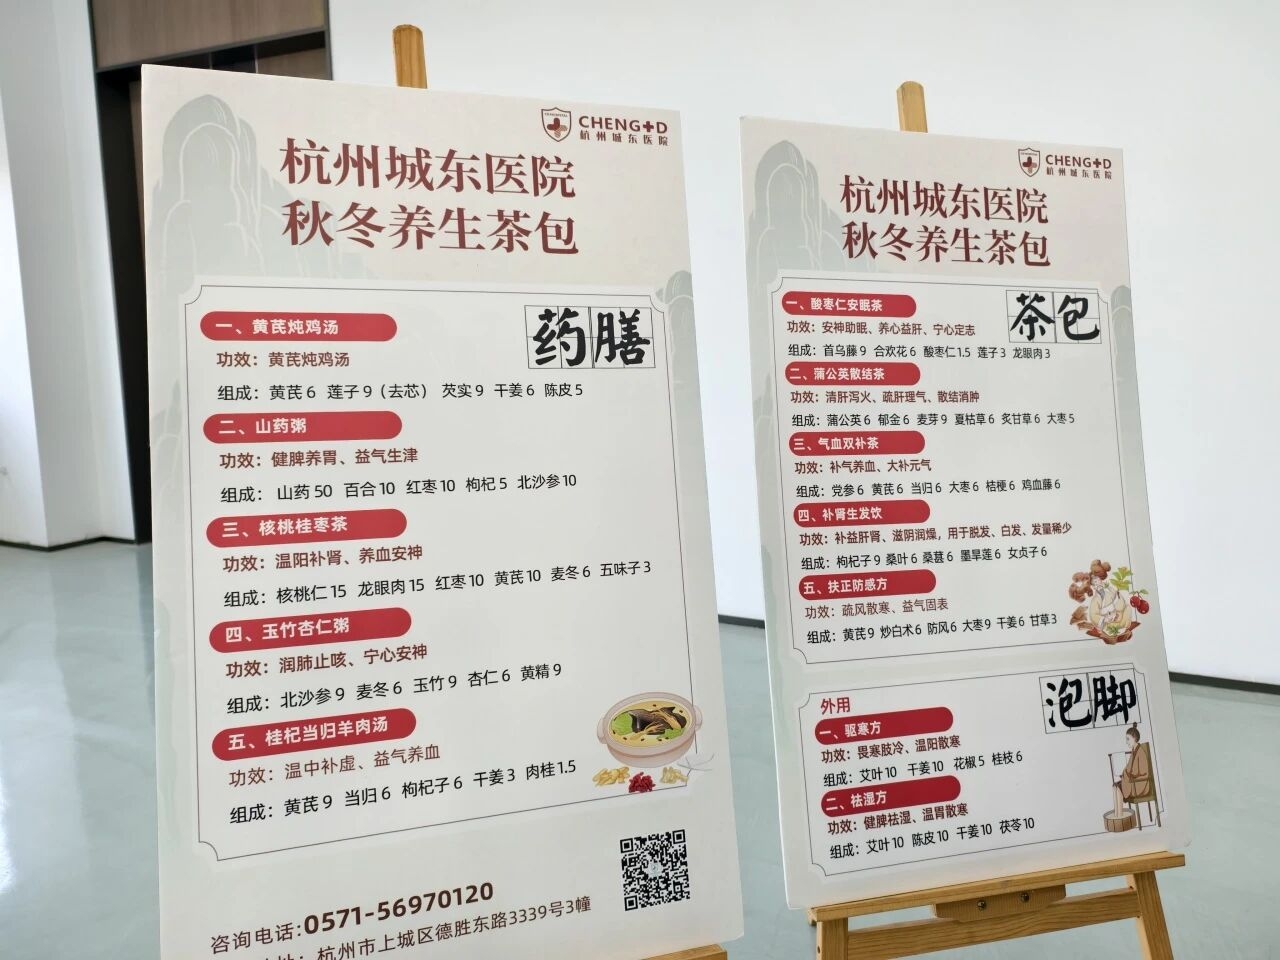 CHENG+D
杭州城东医院
杭州城东医院
秋冬养生茶包
药膳
一、黄芪炖鸡汤
功效：黄芪炖鸡汤
组成：黄芪 6 莲子 9（去芯） 芡实 9 干姜 6 陈皮 5
二、山药粥
功效：健脾养胃、益气生津
组成： 山药 50 百合 10 红枣 10 枸杞 5 北沙参 10
三、核桃桂枣茶
功效：温阳补肾、养血安神
组成：核桃仁 15 龙眼肉 15 红枣 10 黄芪 10 麦冬 6 五味子 3
四、玉竹杏仁粥
功效：润肺止咳、宁心安神
组成：北沙参 9 麦冬 6 玉竹 9 杏仁 6 黄精 9
五、桂杞当归羊肉汤
功效：温中补虚、益气养血
组成：黄芪 9 当归 6 枸杞子 6 干姜 3 肉桂 1.5
咨询电话:0571-56970120
杭州市上城区德胜东路3339号3幢
CHENG+D
杭州城东医院
杭州城东医院
秋冬养生茶包
茶包
一、酸枣仁安眠茶
功效：安神助眠、养心益肝、宁心定志
组成：首乌藤 9 合欢花 6 酸枣仁 1.5 莲子 3 龙眼肉 3
二、蒲公英散结茶
功效：清肝泻火、疏肝理气、散结消肿
组成：蒲公英 6 郁金 6 麦芽 9 夏枯草 6 炙甘草 6 大枣 5
三、气血双补茶
功效：补气养血、大补元气
组成：党参 6 黄芪 6 当归 6 大枣 6 桔梗 6 鸡血藤 6
四、补肾生发饮
功效：补益肝肾、滋阴润燥，用于脱发、白发、发量稀少
组成：枸杞子 9 桑叶 6 桑葚 6 墨旱莲 6 女贞子 6
五、扶正防感方
功效：疏风散寒、益气固表
组成：黄芪 9 炒白术 6 防风 6 大枣 9 干姜 6 甘草 3
泡脚
外用
一、驱寒方
功效：畏寒肢冷、温阳散寒
组成：艾叶 10 干姜 10 花椒 5 桂枝 6
二、祛湿方
功效：健脾祛湿、温胃散寒
组成：艾叶 10 陈皮 10 干姜 10 茯苓 10